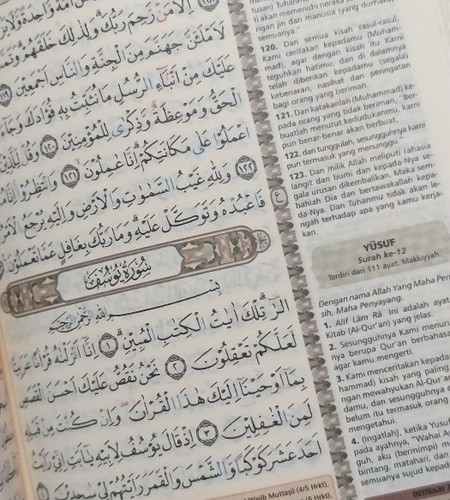 إِلَّا مَنْ رَحِمَ رَبُّكَ وَلِذٰلِكَ خَلَقَهُمْ
لَأَمْلَئَنَّ جَهَنَّمَ مِنَ الْجِنَّةِ وَالنَّاسِ أَجْمَعِينَ
عَلَيْكَ مِنْ أَنْبَاءِ الرُّسُلِ مَا نُثَبِّتُ بِهِ فُؤَادَكَ وَجَاءَ
الْحَقُّ وَمَوْعِظَةٌ وَذِكْرٰى لِلْمُؤْمِنِينَ ١٢٠ وَقُلْ لِلَّذِينَ
اعْمَلُوا عَلٰى مَكَانَتِكُمْ إِنَّا عَامِلُونَ ١٢١ وَانْتَظِرُوا إِنَّا
١٢٢ وَلِلّٰهِ غَيْبُ السَّمٰوٰتِ وَالْأَرْضِ وَإِلَيْهِ يُرْجَعُ الْأَمْرُ
فَاعْبُدْهُ وَتَوَكَّلْ عَلَيْهِ وَمَا رَبُّكَ بِغَافِلٍ عَمَّا تَعْمَلُونَ
سُورَةُ يُوسُفَ
بِسْمِ اللّٰهِ الرَّحْمٰنِ الرَّحِيمِ
الۤرٰ تِلْكَ اٰيٰتُ الْكِتٰبِ الْمُبِينِ ١ إِنَّا أَنْزَلْنٰهُ قُرْاٰنًا عَرَبِيًّا
لَعَلَّكُمْ تَعْقِلُونَ ٢ نَحْنُ نَقُصُّ عَلَيْكَ أَحْسَنَ الْقَصَصِ
بِمَا أَوْحَيْنَا إِلَيْكَ هٰذَا الْقُرْاٰنَ وَإِنْ كُنْتَ مِنْ قَبْلِهِ
لَمِنَ الْغٰفِلِينَ ٣ إِذْ قَالَ يُوسُفُ لِأَبِيهِ يٰأَبَتِ إِنِّي رَأَيْتُ
أَحَدَ عَشَرَ كَوْكَبًا وَالشَّمْسَ وَالْقَمَرَ رَأَيْتُهُمْ لِي سٰجِدِينَ
tusan) Tuhanmu
mi akan memenuhi neraka
ngan jin dan manusia (yang durhaka)
semuanya."
120. Dan semua kisah rasul-rasul,
Kami ceritakan kepadamu (Muham-
mad), agar dengan kisah itu Kami
teguhkan hatimu; dan di dalamnya
telah diberikan kepadamu (segala)
kebenaran, nasihat dan peringatan
bagi orang yang beriman.
121. Dan katakanlah (Muhammad) ke-
pada orang yang tidak beriman, "Ber-
buatlah menurut kedudukanmu, kami
pun benar-benar akan berbuat,
122. dan tunggulah, sesungguhnya kami
pun termasuk yang menunggu."
123. Dan milik Allah meliputi rahasia
langit dan bumi dan kepada-Nya se-
gala urusan dikembalikan. Maka sem-
bahlah Dia dan bertawakallah kepa-
da-Nya. Dan Tuhanmu tidak akan le-
ngah terhadap apa yang kamu kerja-
kan.
YŪSUF
Surah ke-12
Terdiri dari 111 ayat. Makkiyyah.
Dengan nama Allah Yang Maha Penga-
sih, Maha Penyayang.
1. Alif Lām Rā. Ini adalah ayat
Kitab (Al-Qur'an) yang jelas.
2. Sesungguhnya Kami menurun
nya berupa Qur'an berbahasa
agar kamu mengerti.
3. Kami menceritakan kepadamu
hammad) kisah yang paling
ngan mewahyukan Al-Qur'an
damu, dan sesungguhnya
belum itu termasuk orang
mengetahui.
4. (Ingatlah), ketika Yusuf
pada ayahnya, "Wahai Ay
guh, aku (bermimpi) me
bintang, matahari dan
semuanya sujud kepada
Wajib Muttaṣil (4/5 Hrkt),